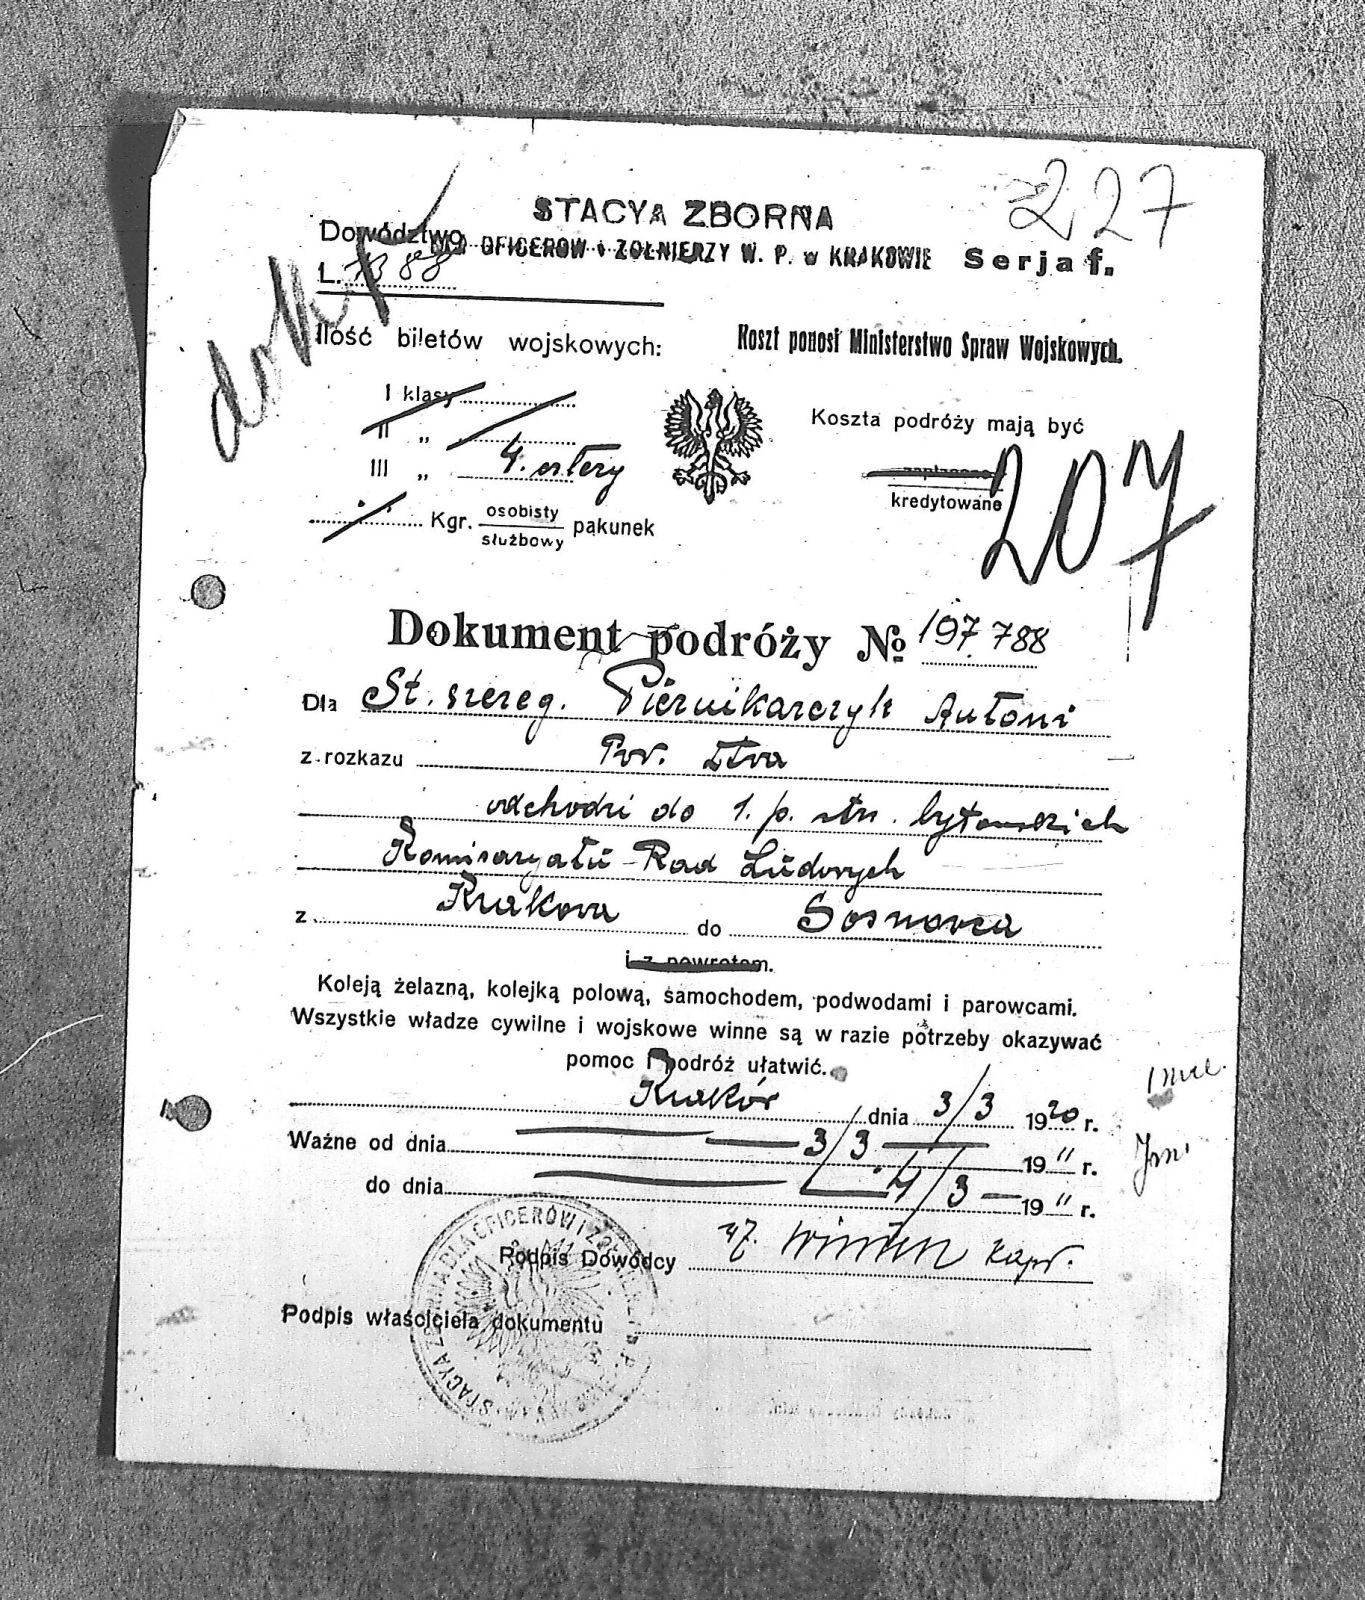 227
STACYA ZBORNA
Dowództwo
DLA OFICERÓW i ŻOŁNIERZY W. P. w KRAKOWIE Serja f.
L. 88
Ilość biletów wojskowych:
Koszt ponosi Ministerstwo Spraw Wojskowych.
I klasy
II „
III „ 4. cztery
Kgr. osobisty pakunek
służbowy
Koszta podróży mają być
zapłacone
kredytowane
207
Dokument podróży № 197.788
Dla St. szereg. Piernikarczyk Antoni
z rozkazu
odchodzi do 1. p. bytomskich
Komisaryatu Rad Ludowych
z Krakowa do Sosnowca
i z powrotem.
Koleją żelazną, kolejką polową, samochodem, podwodami i parowcami.
Wszystkie władze cywilne i wojskowe winne są w razie potrzeby okazywać
pomoc i podróż ułatwić.
Kraków dnia 3/3 1920 r.
Ważne od dnia 3/3 19 " r.
do dnia 4/3 19 " r.
Podpis Dowódcy kapr.
Podpis właściciela dokumentu
STACYA ZBORNA DLA OFICERÓW I ŻOŁNIERZY